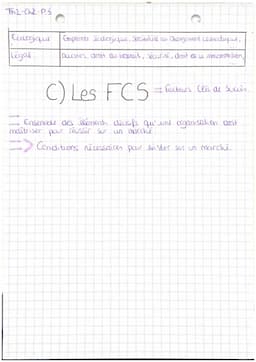 Th2-Ch2-P.3
Ecologique Empreinte écologique, Sensibilité au changement climatique,
Légal Business, droit du travail, Sécurité, droit de la consommation,
C) Les FCS = Facteurs Clés de Succès.
=> Ensemble des éléments décisifs qu'une organisation doit
maîtriser pour réussir sur un marché
=> Conditions nécessaires pour exister sur un marché.